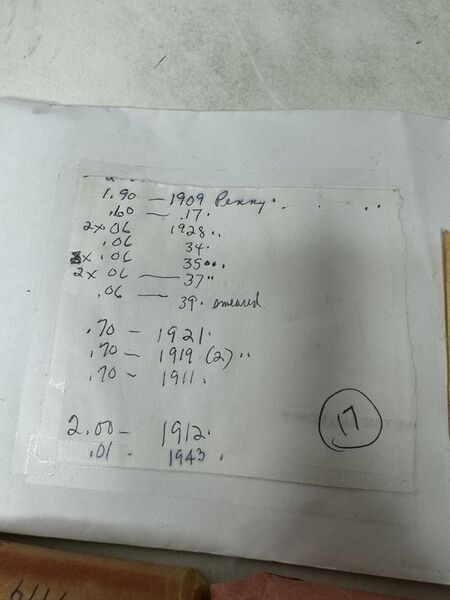 1.90 — 1909 Penny.
.60 — .17.
2x .06 1928..
.06 34.
x .06 35...
2x .06 — 37..
.06 — 39. smeared
.70 — 1921.
.70 — 1919 (2)..
.70 — 1911.
2.00 — 1912.
.01 - 1943.
17